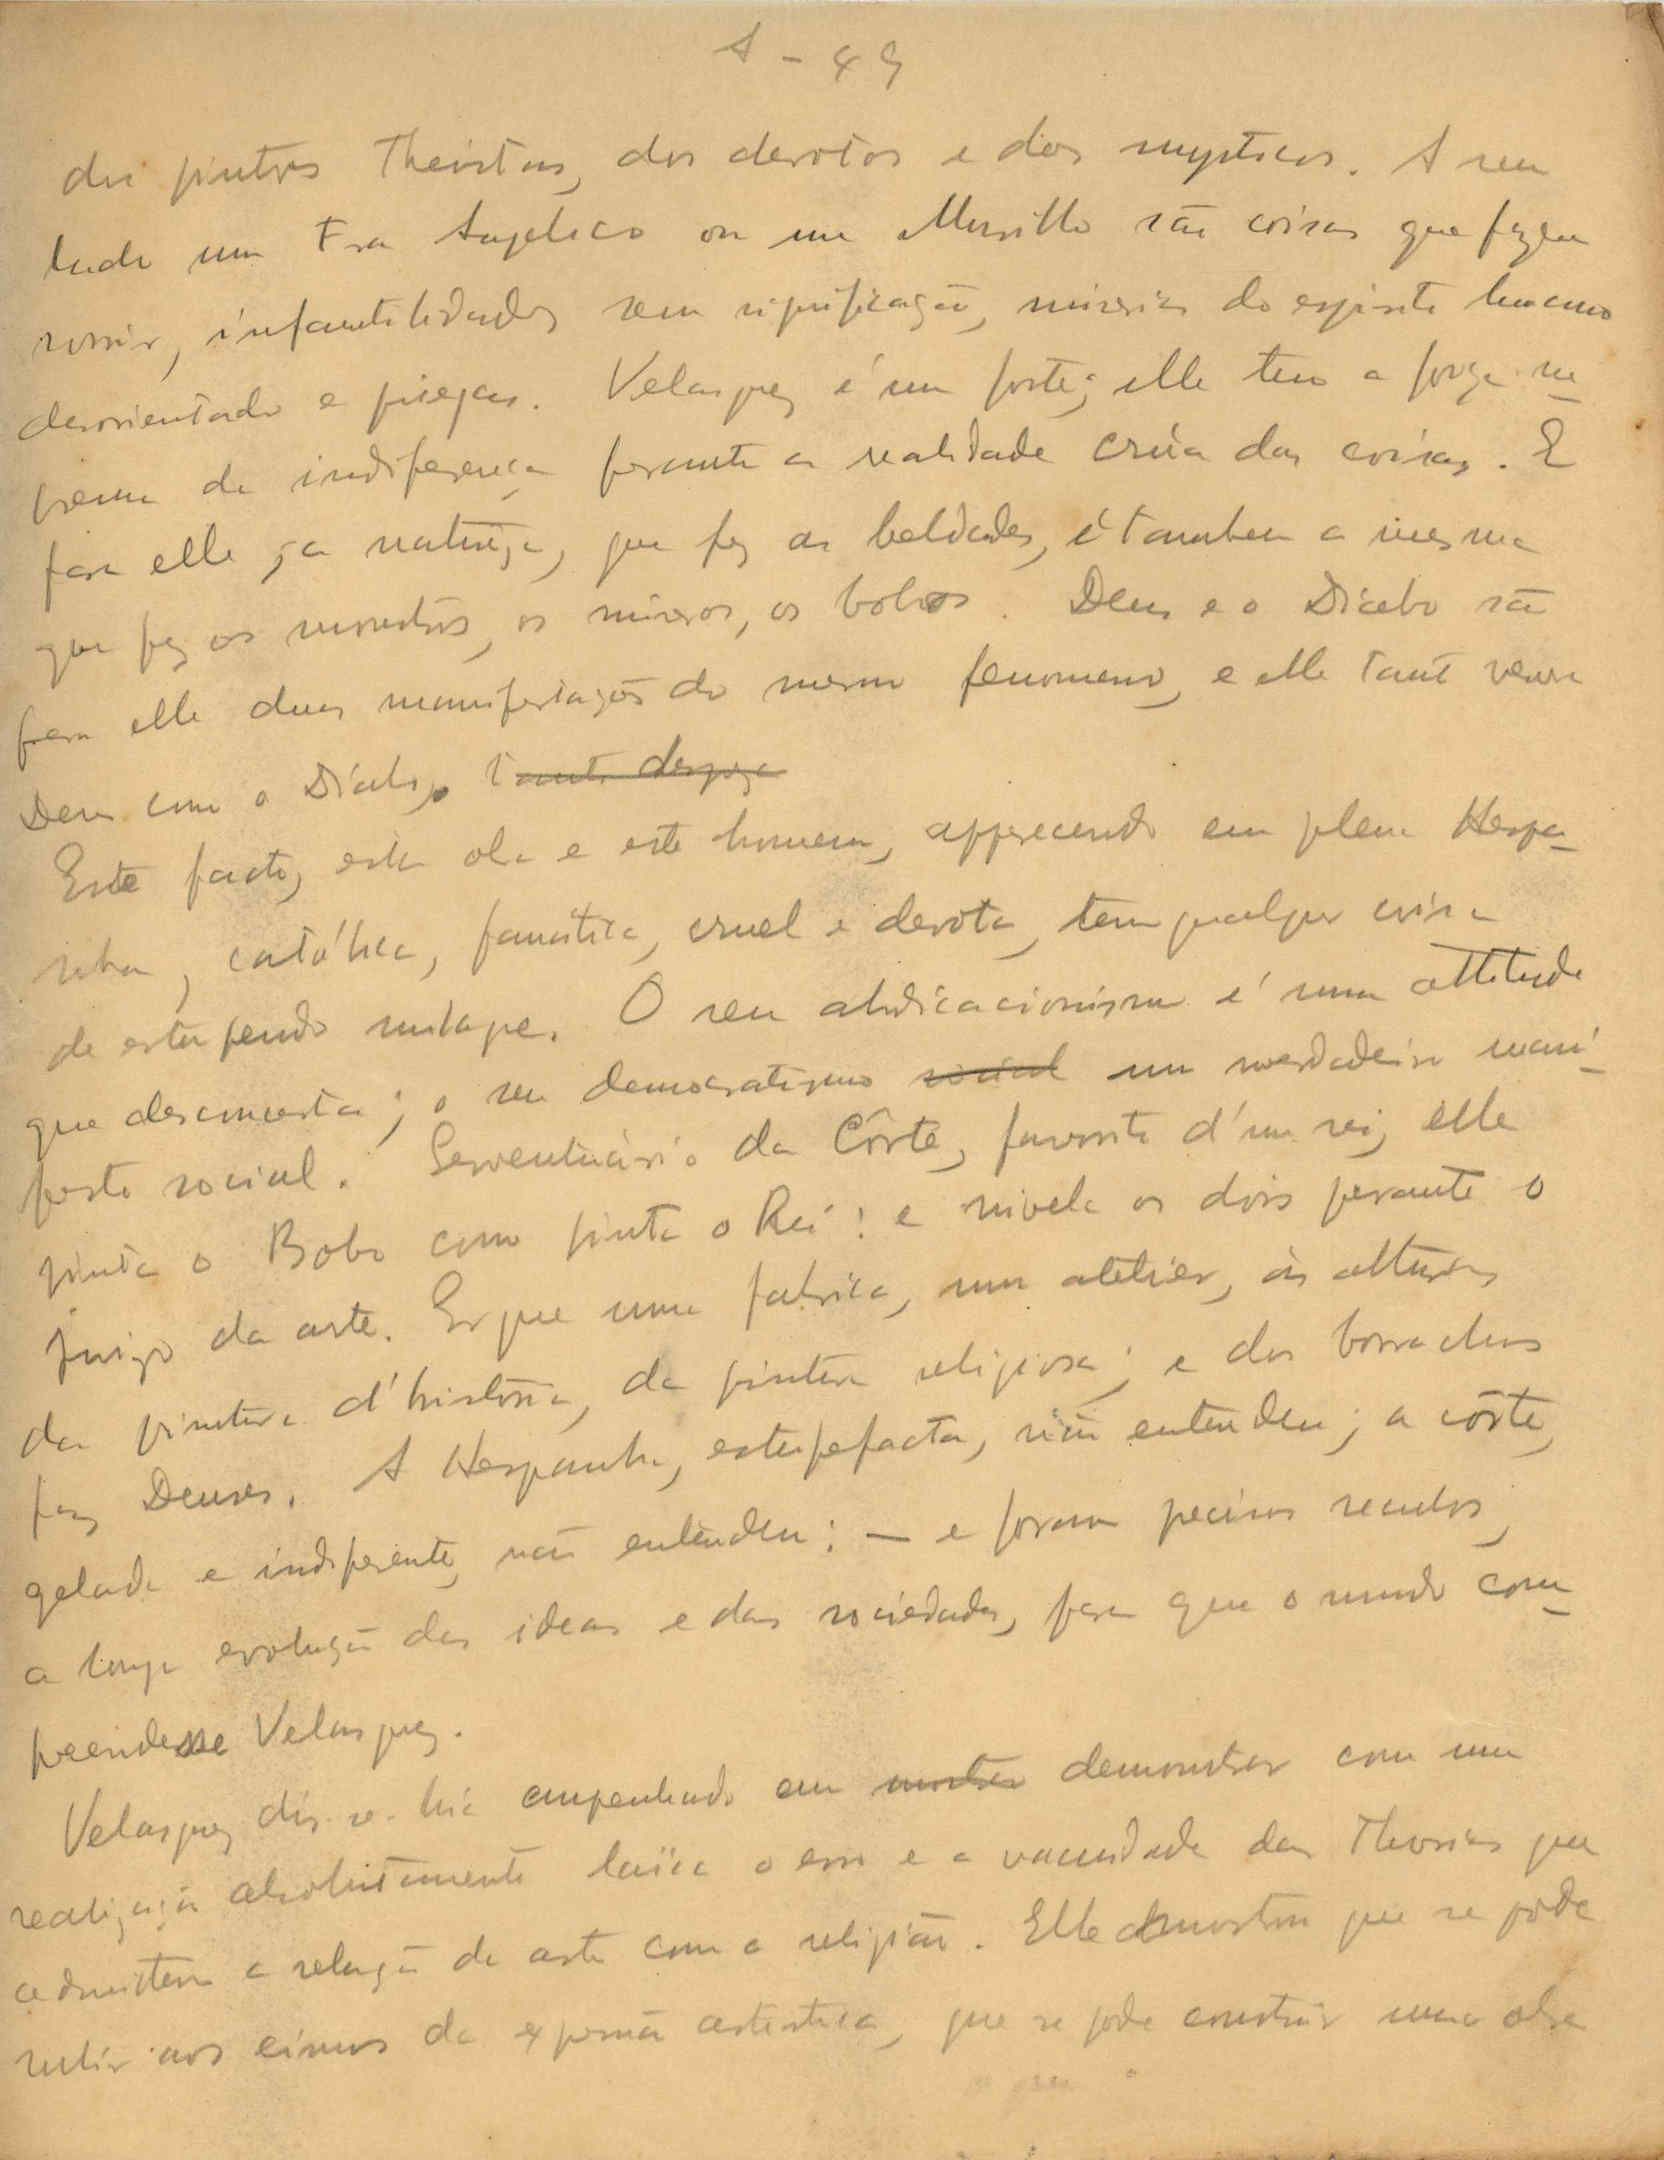 A - 49
dos pintores Theistas, dos devotos e dos mysticos. A seu
lado um Fra Angelico ou um Murillo são coisas que fazem
sorrir, infantilidades sem significação, miserias do espirito humano
desorientado e piegas. Velasquez é um forte; elle tem a força su-
prema da indiferença perante a realidade crúa das coisas. E
para elle, a natureza, que fez as beldades, é tambem a mesma
que fez os monstros, os miseros, os bobos. Deus e o Diabo são
para elle duas manifestações do mesmo fenomeno, e elle tant
Deus como o Diabo, tanto despreza
Este facto, esta obra e este homem, apparecendo em plena Hespa-
nha, católica, fanática, cruel e devota, tem qualquer coisa
de estupendo milagre. O seu abdicacionismo é uma attitude
que desconcerta; o seu democratismo social um verdadeiro mani-
festo social. Serventuário da Côrte, favorito d'um rei, elle
pinta o Bobo como pinta o Rei: e nivela os dois perante o
juizo da arte. Ergue uma fabrica, um atelier, ás alturas
da pintura d'historia, da pintura religiosa; e dos borrachos
faz Deuses. A Hespanha, estupefacta, não entendeu; a côrte,
gelada e indiferente, não entendeu: — e foram precisos seculos,
a longa evolução das ideas e das sociedades, para que o mundo com-
preendesse Velasquez.
Velasquez dis-se-hia empenhado em mostrar demonstrar com uma
realização absolutamente laïca o erro e a vacuidade das Theorias que
admittem a relação da arte com a religião. Elle demostrou que se póde
subir aos cimos da expressão artistica, que se pode construir uma obra